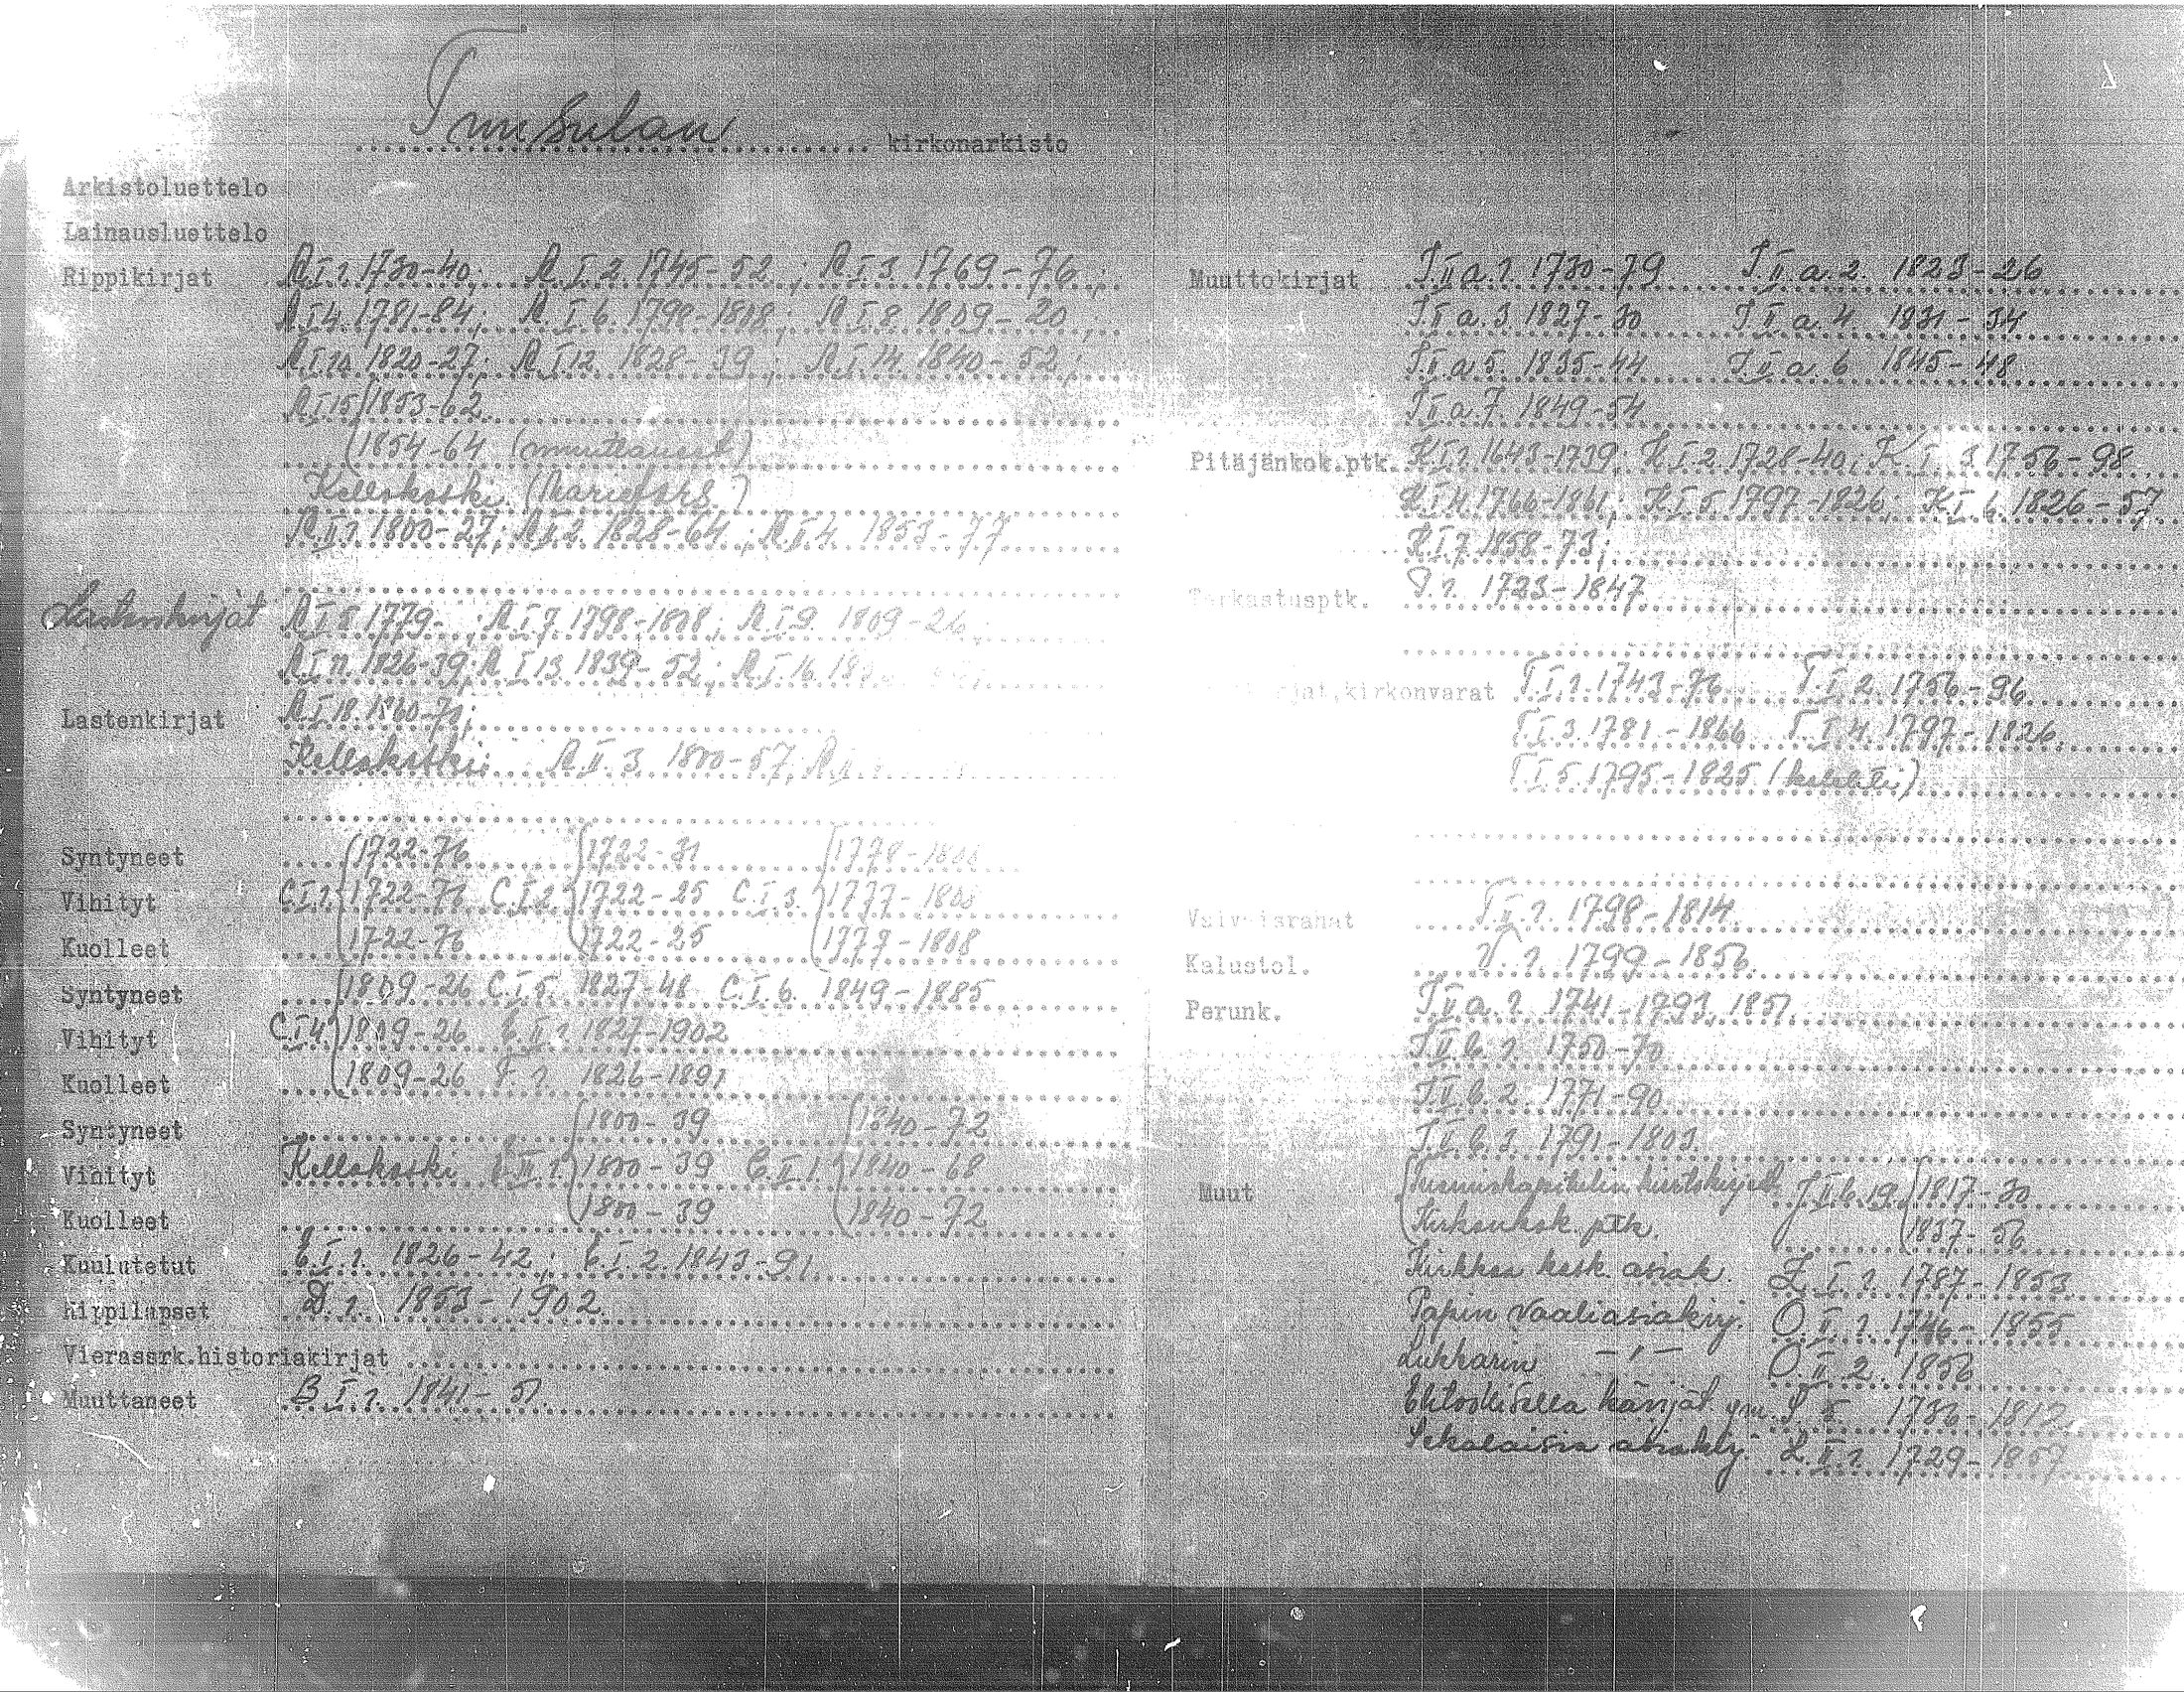 Tuusulan kirkonarkisto
Arkistoluettelo
Lainausluettelo
Rippikirjat A.I.1. 1730-40; A.I.2. 1745-52; A.I.3. 1769-76;
A.I.4. 1781-84; A.I.6. 1798-1808; A.I.8. 1809-20;
A.I.10. 1820-27; A.I.12. 1828-39; A.I.14. 1840-52;
A.I.15. (1853-62.
(1854-64 (muuttaneet)
Kellokoski (Mariefors)
A.II.1. 1800-27; A.II.2. 1828-64; A.II.4. 1853-77
Lastenkirjat A.I.5. 1779- ; A.I.7. 1798-1808; A.I.9. 1809-26;
A.I.11. 1826-39; A.I.13. 1839-52; A.I.16.
Lastenkirjat A.I.18. 1860-70;
Kellokoski: A.II.3. 1800-57;
Syntyneet (1722-76 (1722-31 (1778-1808
Vihityt C.I.1. 1722-76 C.I.2. 1722-25 C.I.3. 1777-1808
Kuolleet 1722-76 1722-25 1777-1808
Syntyneet (1809-26 C.I.5. 1827-48 C.I.6. 1849-1885
Vihityt C.I.4. 1809-26 E.II.1. 1827-1902
Kuolleet 1809-26 F.1. 1826-1891
Syntyneet (1800-39 (1840-72
Vihityt Kellokoski 1800-39 C.II.1. 1840-68
Kuolleet 1800-39 1840-72
Kuulutetut E.I.1. 1826-42; E.I.2. 1843-91
Rippilapset D.1. 1853-1902.
Vierassrk.historiakirjat
Muuttaneet B.I.1. 1841-51.
Muuttokirjat J.II a.1. 1730-79 J.II.a.2. 1823-26
J.II a.3. 1827-30 J.II.a.4. 1831-34
J.II.a.5. 1835-44 J.II.a.6 1845-48
J.II.a.7. 1849-54
Pitäjänkok.ptk. K.I.1. 1643-1739; K.I.2. 1728-40; K.I.3. 1756-98
K.I.4. 1766-1861; K.I.5. 1797-1826; K.I.6. 1826-57
K.I.7. 1858-73;
Tarkastusptk. P.1. 1723-1847
kirkonvarat T.I.1. 1743-76 T.I.2. 1756-96
T.I.3. 1781-1866 T.I.4. 1797-1826.
T.I.5. 1795-1825 (kolehti)
Vaivaisrahat T.II.1. 1798-1814.
Kalustol. V.1. 1799-1856.
Perunk. J.II.a.1. 1741-1793, 1851.
J.II.b.1. 1750-70
J.II.b.2. 1771-90
J.II.b.3. 1791-1803.
Muut (Tuomiokapitulin kiertokirjeet J.II.b.19. (1817-30
Kirkonkok. ptk. 1837-56
Kirkkoa kosk. asiak. Z.I.1. 1787-1853
Papin vaaliasiakirj. O.II.1. 1746-1855
Lukkarin -"- O.II.2. 1856
Ehtoollisella kävijät ym. 1786-1812.
Sekalaisia asiakirj. Z.II.1. 1729-1857